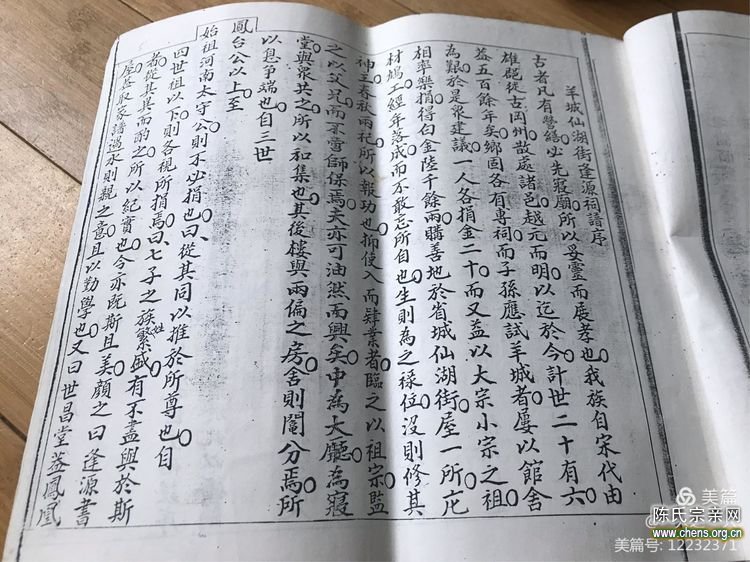 羊城仙湖街逢源祠譜序
古者凡有營繕必先寢廟所以妥靈而展孝也我族自宋代由
雄邑從古岡州散處諸邑越元而明以迄於今計世二十有六
益五百餘年矣鄉固各有專祠而子孫應試羊城者屢以館舍
為艱於是衆建議一人各捐金二十而又益以大宗小宗之祖
相率樂捐得白金陸千餘兩購善地於省城仙湖街屋一所庀
材鳩工經年落成而不敢忘所自也生則為之祿位沒則修其
神主春秋兩祀所以報功也抑使入而肄業者臨之以祖宗監
之以父兄而不啻師保焉夫亦可油然而興矣中為大廳為寢
堂與衆共之所以和集也其後樓與兩偏之房舍則鬮分焉所
以息爭端也自三世
鳳台公以上至
始祖河南太守公則不必捐也曰從其同以推於所尊也自
四世祖以下則各視所捐焉曰七子之族繁姓盛有不盡與於斯
者從其異而酌之所以紀實也今亦既斯且美顏之曰逢源書
屋蓋取家譜遇水則親之意且以勤學也又曰世昌堂蓋鳳凰
美篇
陈氏宗亲网
www.chens.org.cn
美篇号: 12232371